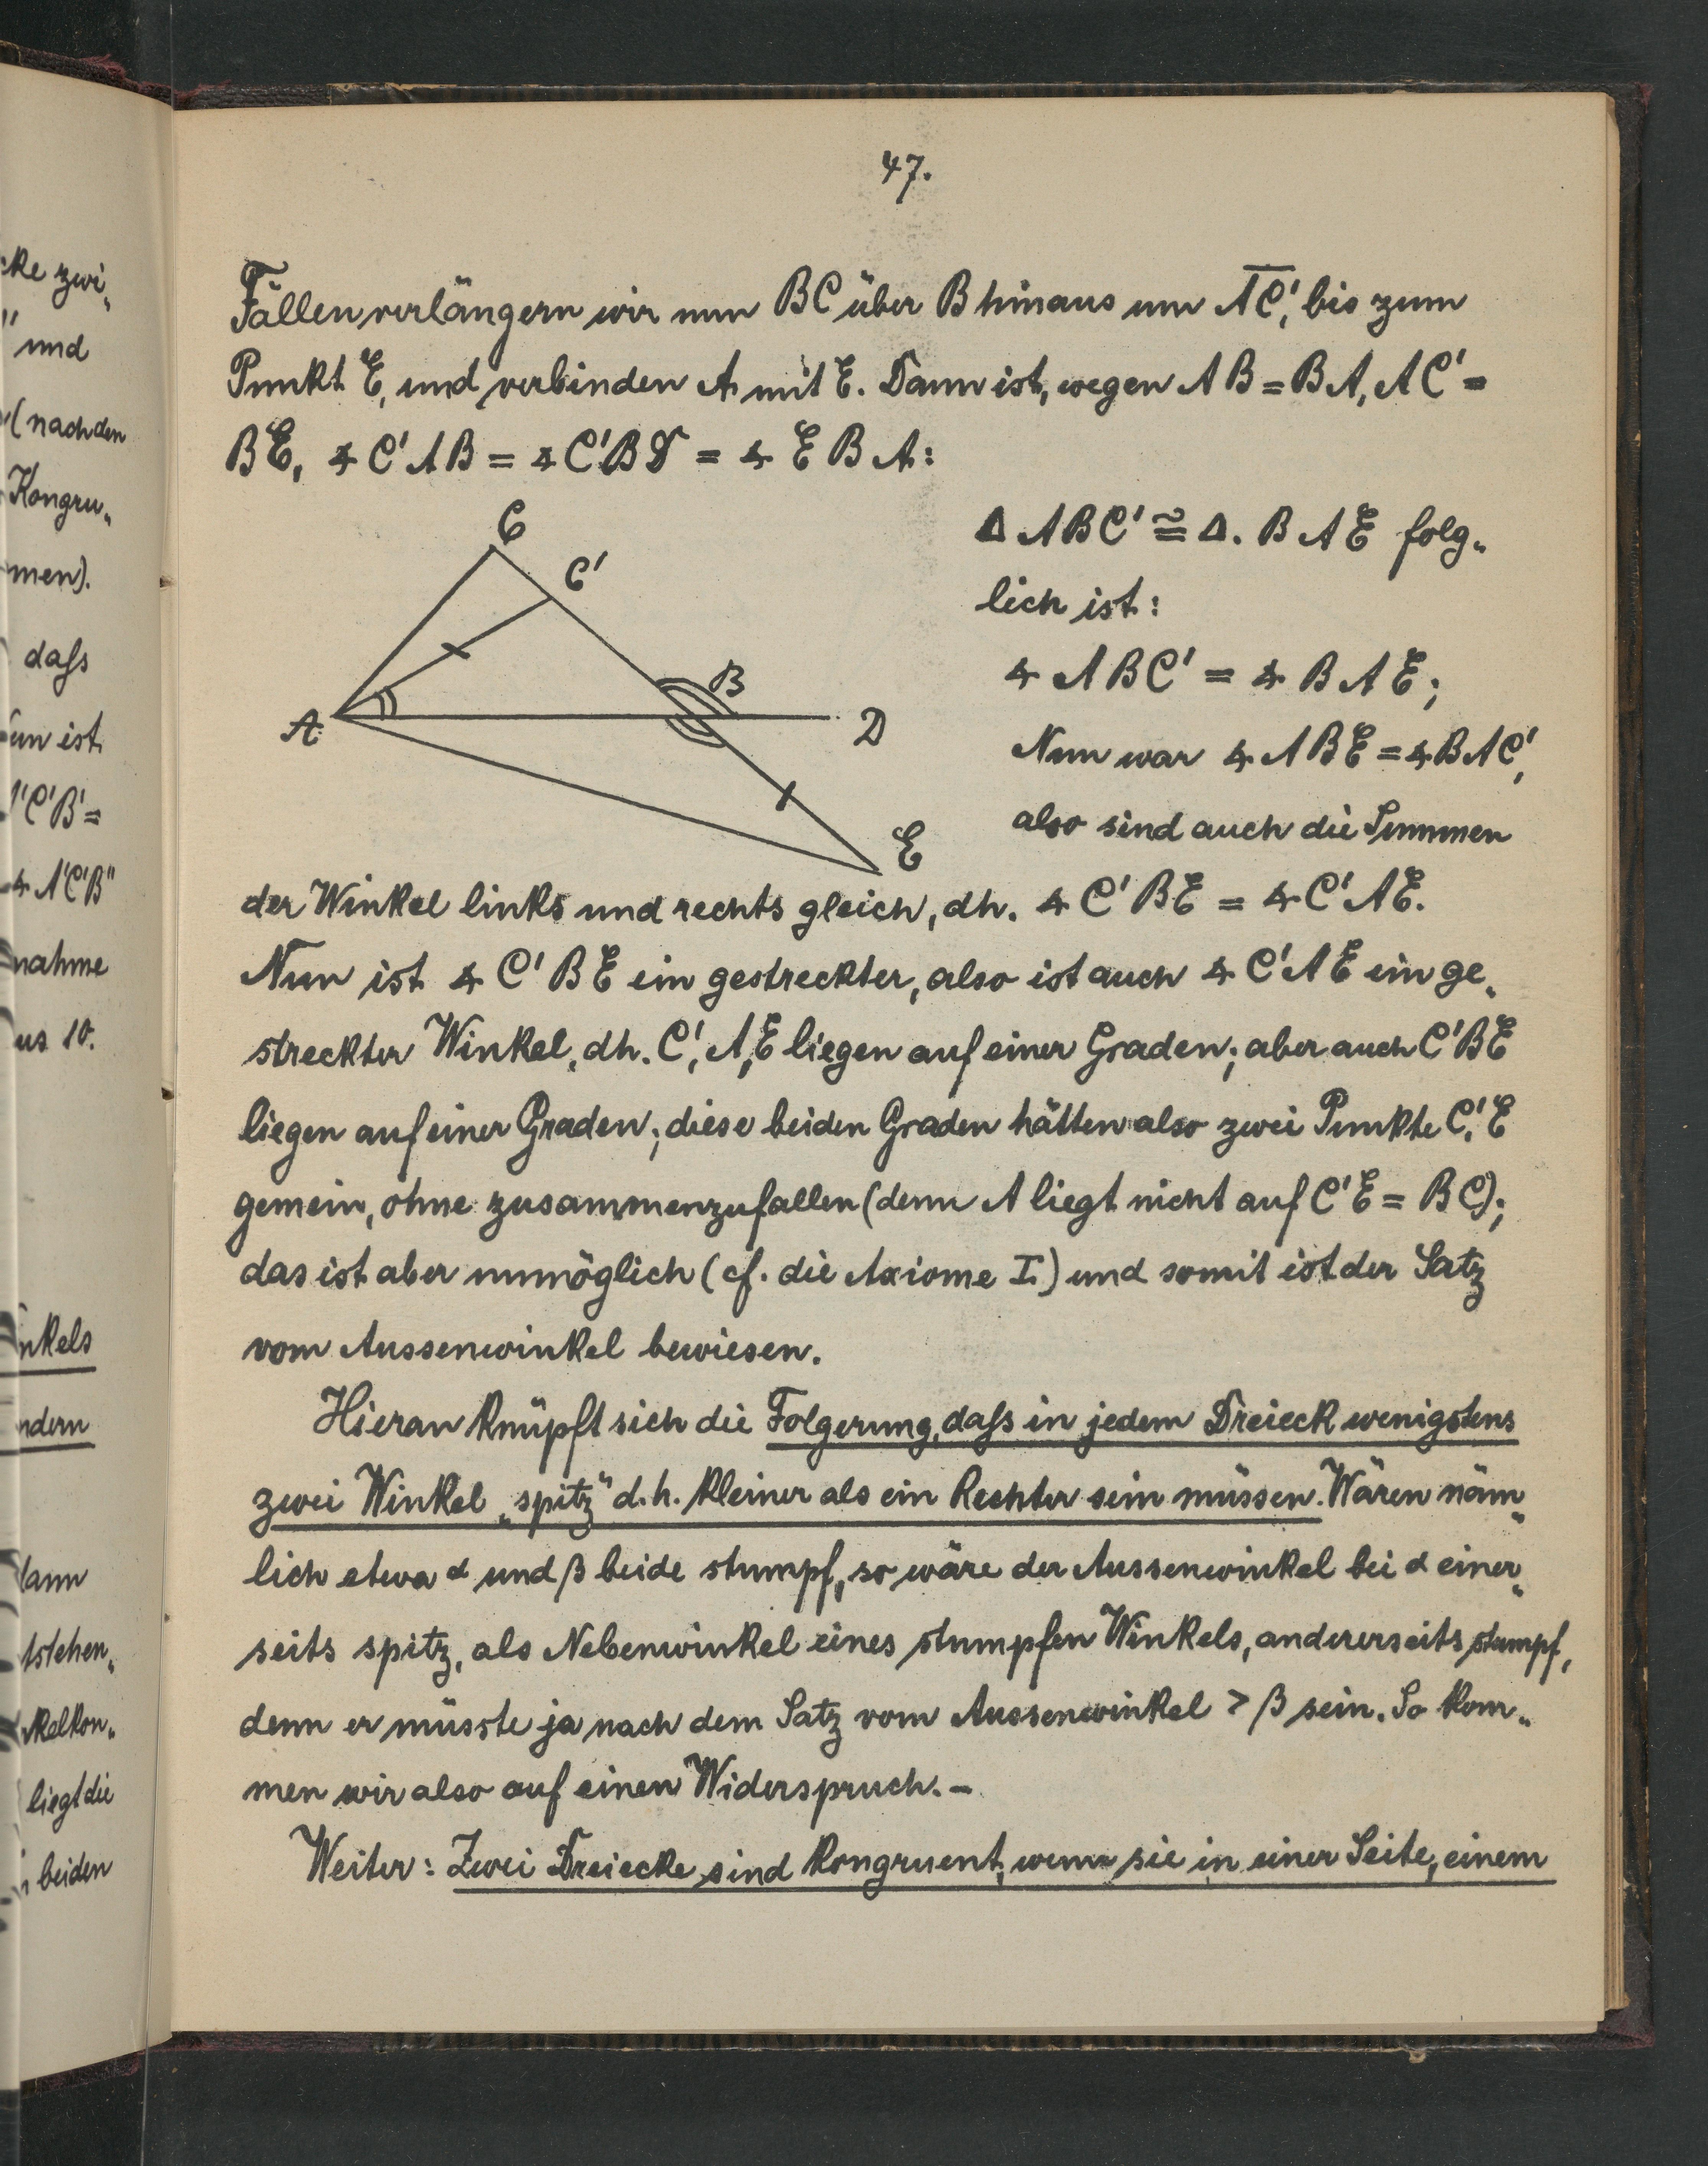 47.
Fällen verlängern wir nun BC über B hinaus um A̅C̅', bis zum
Punkt E, und verbinden A mit E. Dann ist, wegen AB = BA, AC' =
BE, ∢ C'AB = ∢ C'BD = ∢ EBA:
C
C'
B
A
D
E
Δ ABC' ≅ Δ. BAE folg„
lich ist:
∢ ABC' = ∢ BAE;
Nun war ∢ ABE = ∢ BAC',
also sind auch die Summen
der Winkel links und rechts gleich, dh. ∢ C'BE = ∢ C'AE.
Nun ist ∢ C'BE ein gestreckter, also ist auch ∢ C'AE ein ge„
streckter Winkel, dh. C', A, E liegen auf einer Graden; aber auch C'BE
liegen auf einer Graden; diese beiden Graden hätten also zwei Punkte C', E
gemein, ohne zusammenzufallen (denn A liegt nicht auf C'E = BC);
das ist aber unmöglich (cf. die Axiome I.) und somit ist der Satz
vom Aussenwinkel bewiesen.
Hieran knüpft sich die Folgerung, dass in jedem Dreieck wenigstens
zwei Winkel „spitz" d.h. kleiner als ein Rechter sein müssen. Wären näm„
lich etwa α und β beide stumpf, so wäre der Aussenwinkel bei α einer„
seits spitz, als Nebenwinkel eines stumpfen Winkels, andererseits stumpf,
denn er müsste ja nach dem Satz vom Aussenwinkel > β sein. So kom„
men wir also auf einen Widerspruch. –
Weiter: Zwei Dreiecke sind kongruent, wenn sie in einer Seite, einem